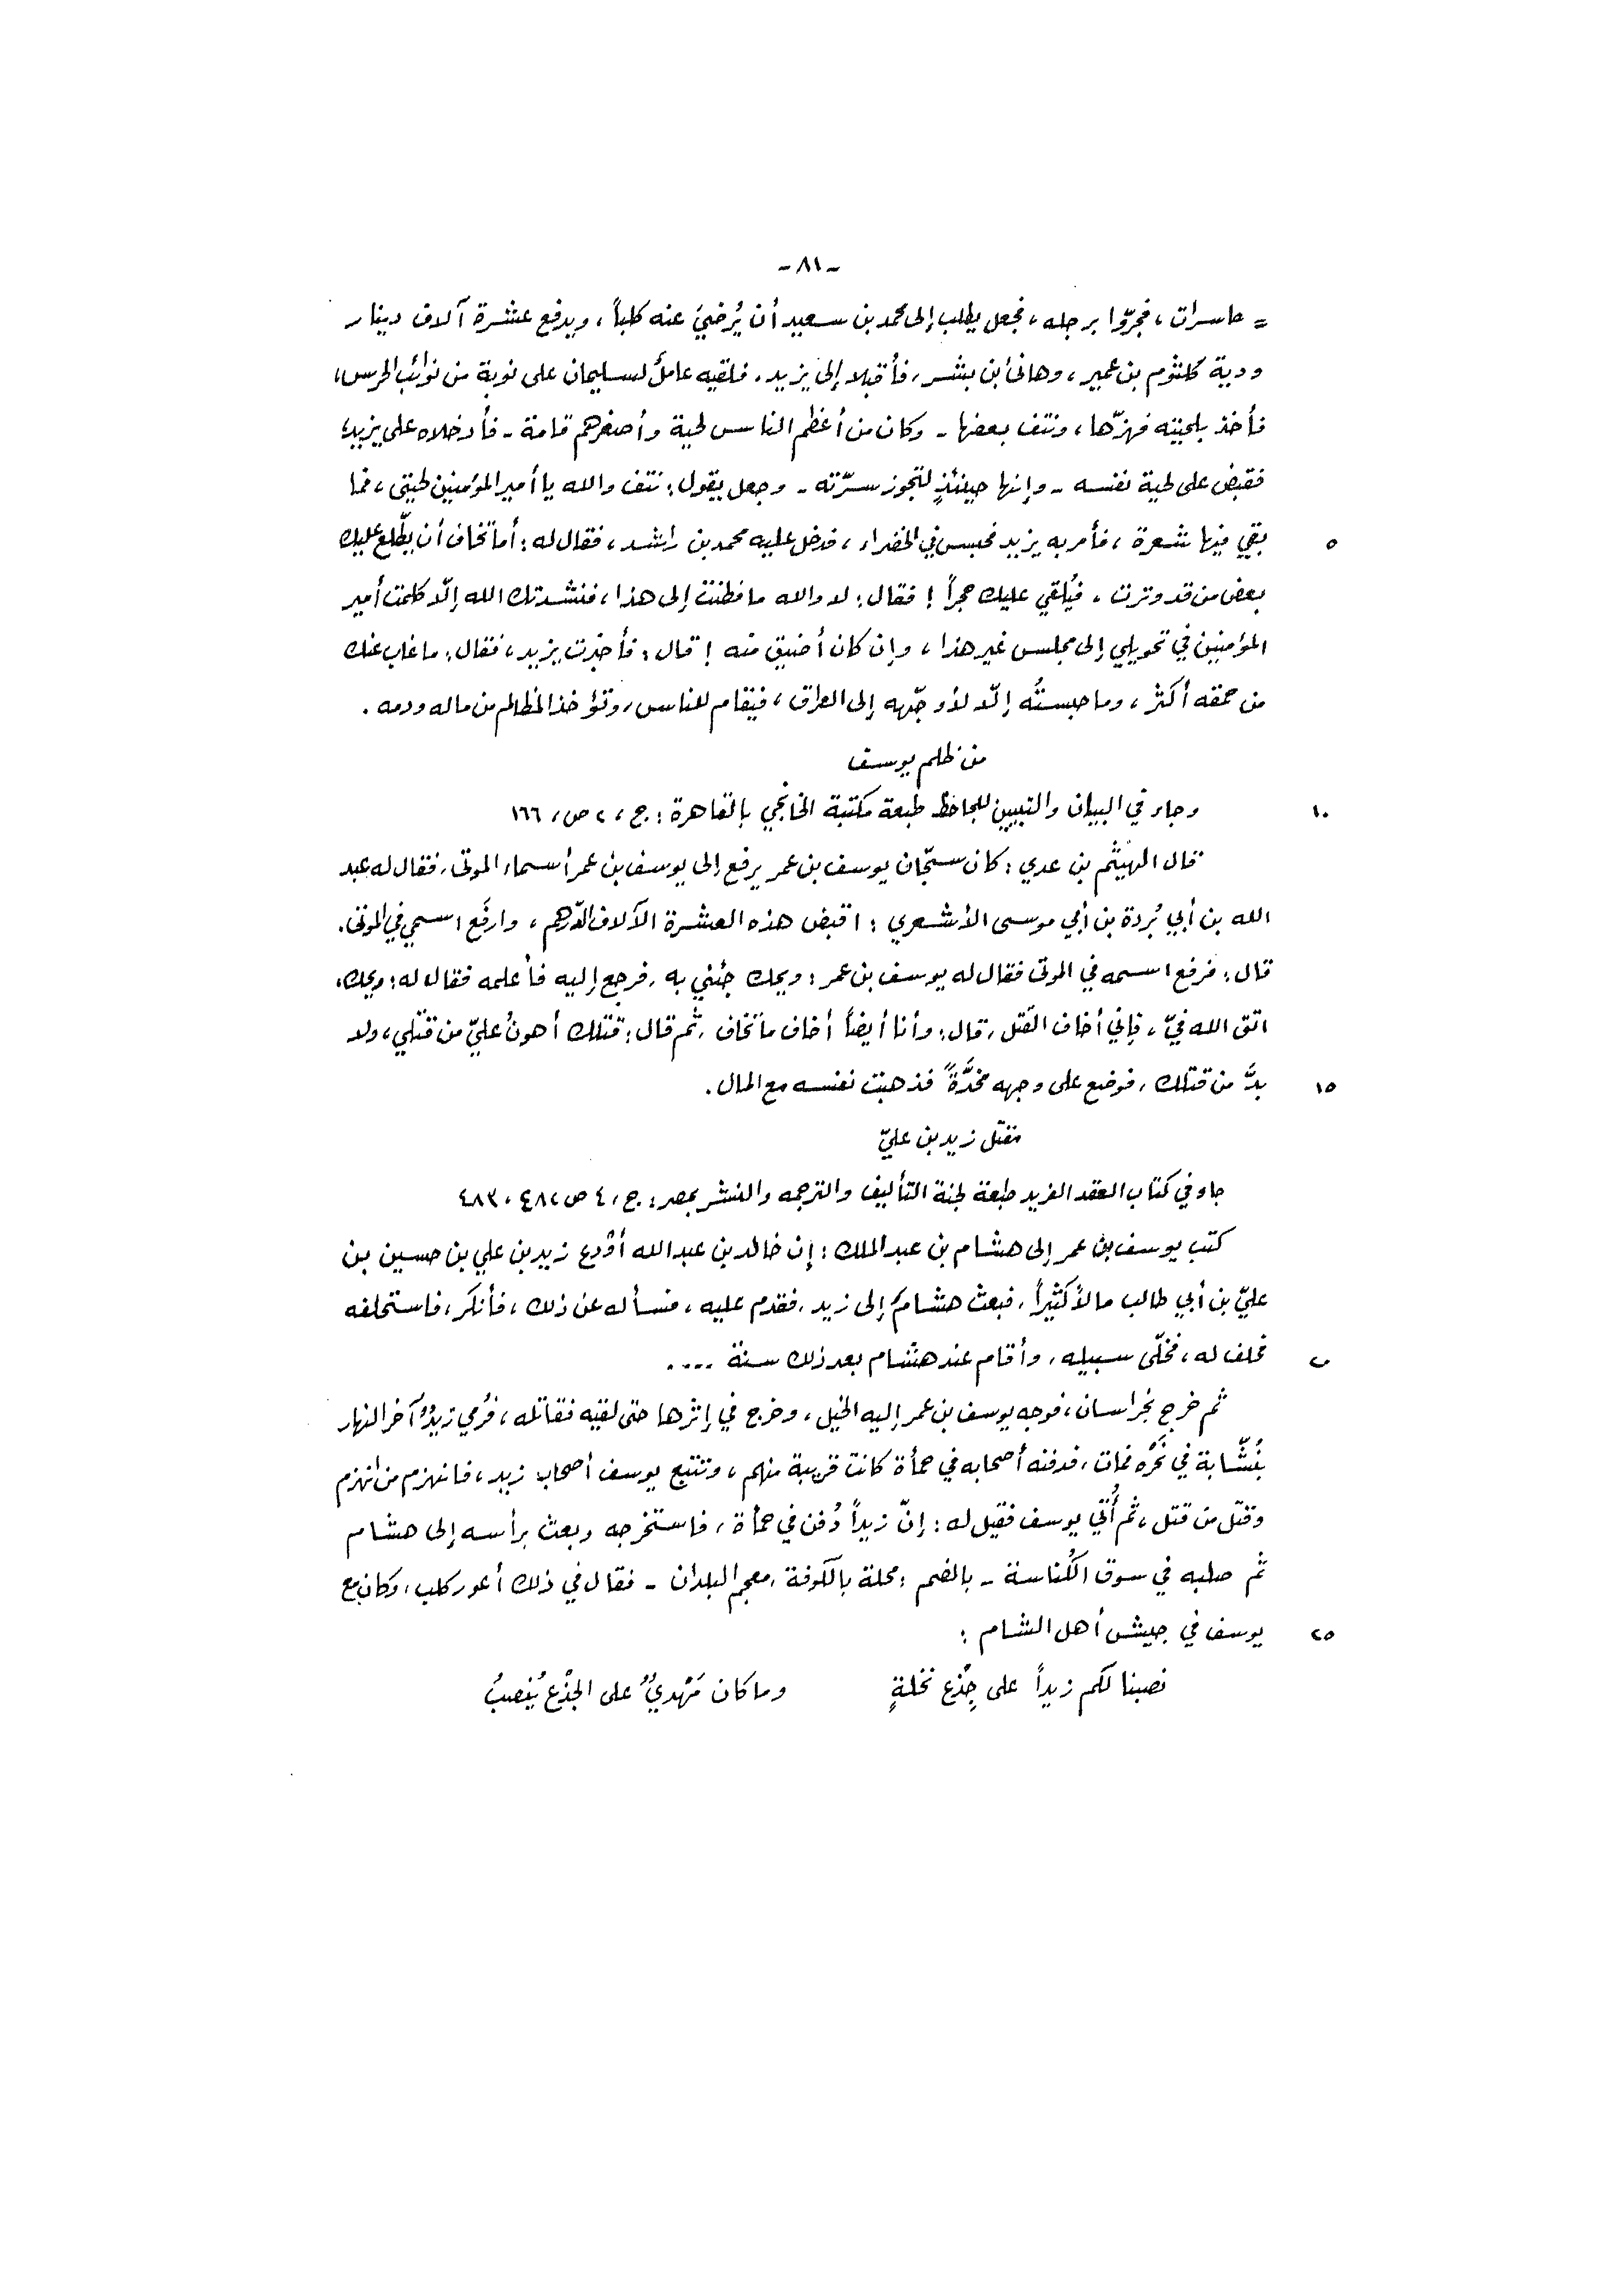 -٨١-
= حاسرات، فجرّوا برجله، فجعل يطلب إلى محمد بن سعيد أن يُرضيَ عنه كلباً، ويدفع عشرة آلاف دينار
ودية كلثوم بن عمير، وهانئ بن بشر، فأقبلا إلى يزيد. فلقيه عاملٌ لسليمان على نوبة من نوائب الحرس،
فأخذ بلحيته فهزّها، ونتف بعضها - وكان من أعظم الناس لحية وأصغرهم قامة - فأدخلاه على يزيد،
فقبض على لحية نفسه - وإنها حينئذٍ لتجوز سرّته - وجعل يقول: نتف والله يا أمير المؤمنين لحيتي، فما
بقي فيها شعرة، فأمر به يزيد فحبس في الخضراء، فدخل عليه محمد بن راشد، فقال له: أما تخاف أن يطّلع عليك
٥
بعض من قد وترت، فيُلقي عليك حجراً! فقال: لا والله ما فطنت إلى هذا، فنشدتك الله إلّا كلمت أمير
المؤمنين في تحويلي إلى مجلس غير هذا، وإن كان أضيق منه! قال: فأخبرت يزيد، فقال: ما غاب عنك
من حمقه أكثر، وما حبستُه إلّا لأوجّهه إلى العراق، فيقام للناس، وتؤخذ المظالم من ماله ودمه.
من ظلم يوسف
وجاء في البيان والتبيين للجاحظ طبعة مكتبة الخانجي بالقاهرة: ج، ٢ ص، ١٦٦
١٠
قال الهيثم بن عدي: كان سجّان يوسف بن عمر يرفع إلى يوسف بن عمر أسماء الموتى، فقال له عبد
الله بن أبي بُردة بن أبي موسى الأشعري: اقبض هذه العشرة الآلاف الدّرهم، وارفَع اسمي في الموتى.
قال: فرفع اسمه في الموتى فقال له يوسف بن عمر: ويحك جئني به، فرجع إليه فأعلمه فقال له: ويحك،
اتق الله فيّ، فإني أخاف القتل، قال: وأنا أيضاً أخاف ما تخاف، ثم قال: قتلك أهونُ عليّ من قتلي، ولا
بدَّ من قتلك، فوضع على وجهه مخدَّةً فذهبت نفسه مع المال.
١٥
مقتل زيد بن عليّ
جاء في كتاب العقد الفريد طبعة لجنة التأليف والترجمه والنشر بمصر: ج، ٤ ص، ٤٨٢، ٤٨٣
كتب يوسف بن عمر إلى هشام بن عبد الملك: إن خالد بن عبد الله أوْدع زيد بن علي بن حسين بن
عليّ بن أبي طالب مالاً كثيراً، فبعث هشامٌ إلى زيد، فقدم عليه، فسأله عن ذلك، فأنكر، فاستحلفه
فحلف له، فخلّى سبيله، وأقام عند هشام بعد ذلك سنة ....
٢٠
ثم خرج بخراسان، فوجه يوسف بن عمر إليه الخيل، وخرج في إثرها حتى لقيه فقاتله، فرُمي زيدٌ آخر النهار
بنُشّابة في نَحْره فمات، فدفنه أصحابه في حمأة كانت قريبة منهم، وتتبع يوسف أصحاب زيد، فانهزم من انهزم
وقتل من قتل، ثم أُتي يوسف فقيل له: إنّ زيداً دُفن في حمأة، فاستخرجه وبعث برأسه إلى هشام
ثم صلبه في سوق الكُناسة - بالضم: محلة بالكوفة، معجم البلدان - فقال في ذلك أعور كلب، وكان مع
يوسف في جيش أهل الشام:
٢٥
نصبنا لكم زيداً على جِذْع نخلةٍ وما كان مَهْديٌّ على الجذْع يُنصبُ